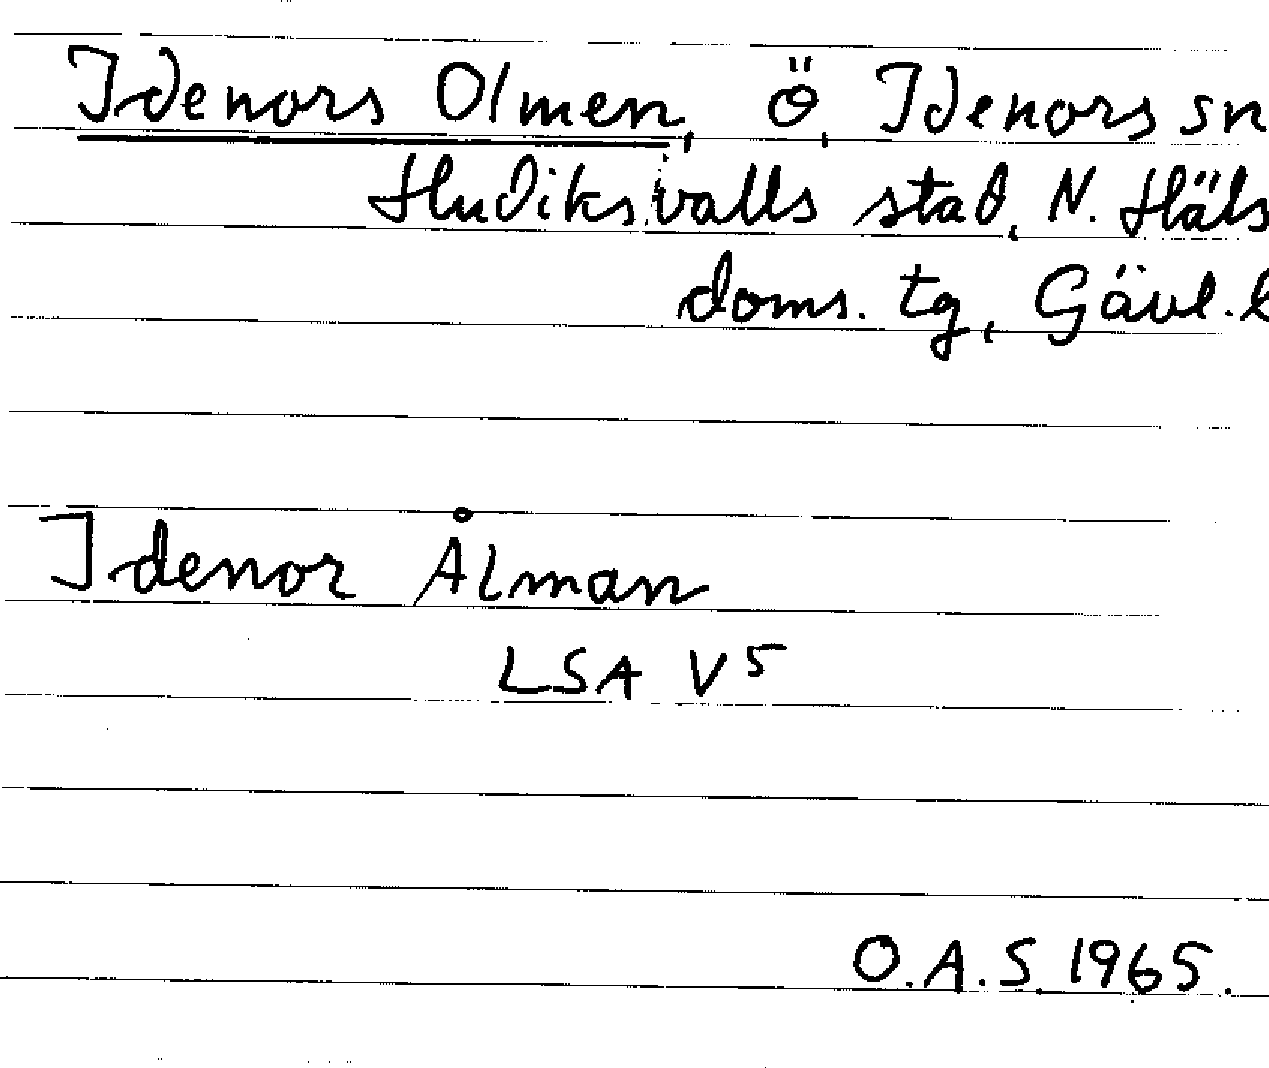 Idenors Olmen, ö, Idenors sn
Hudiksvalls stad, N. Häls
doms. tg, Gävl. l
Idenor Ålman
LSA V5
O.A.S. 1965.